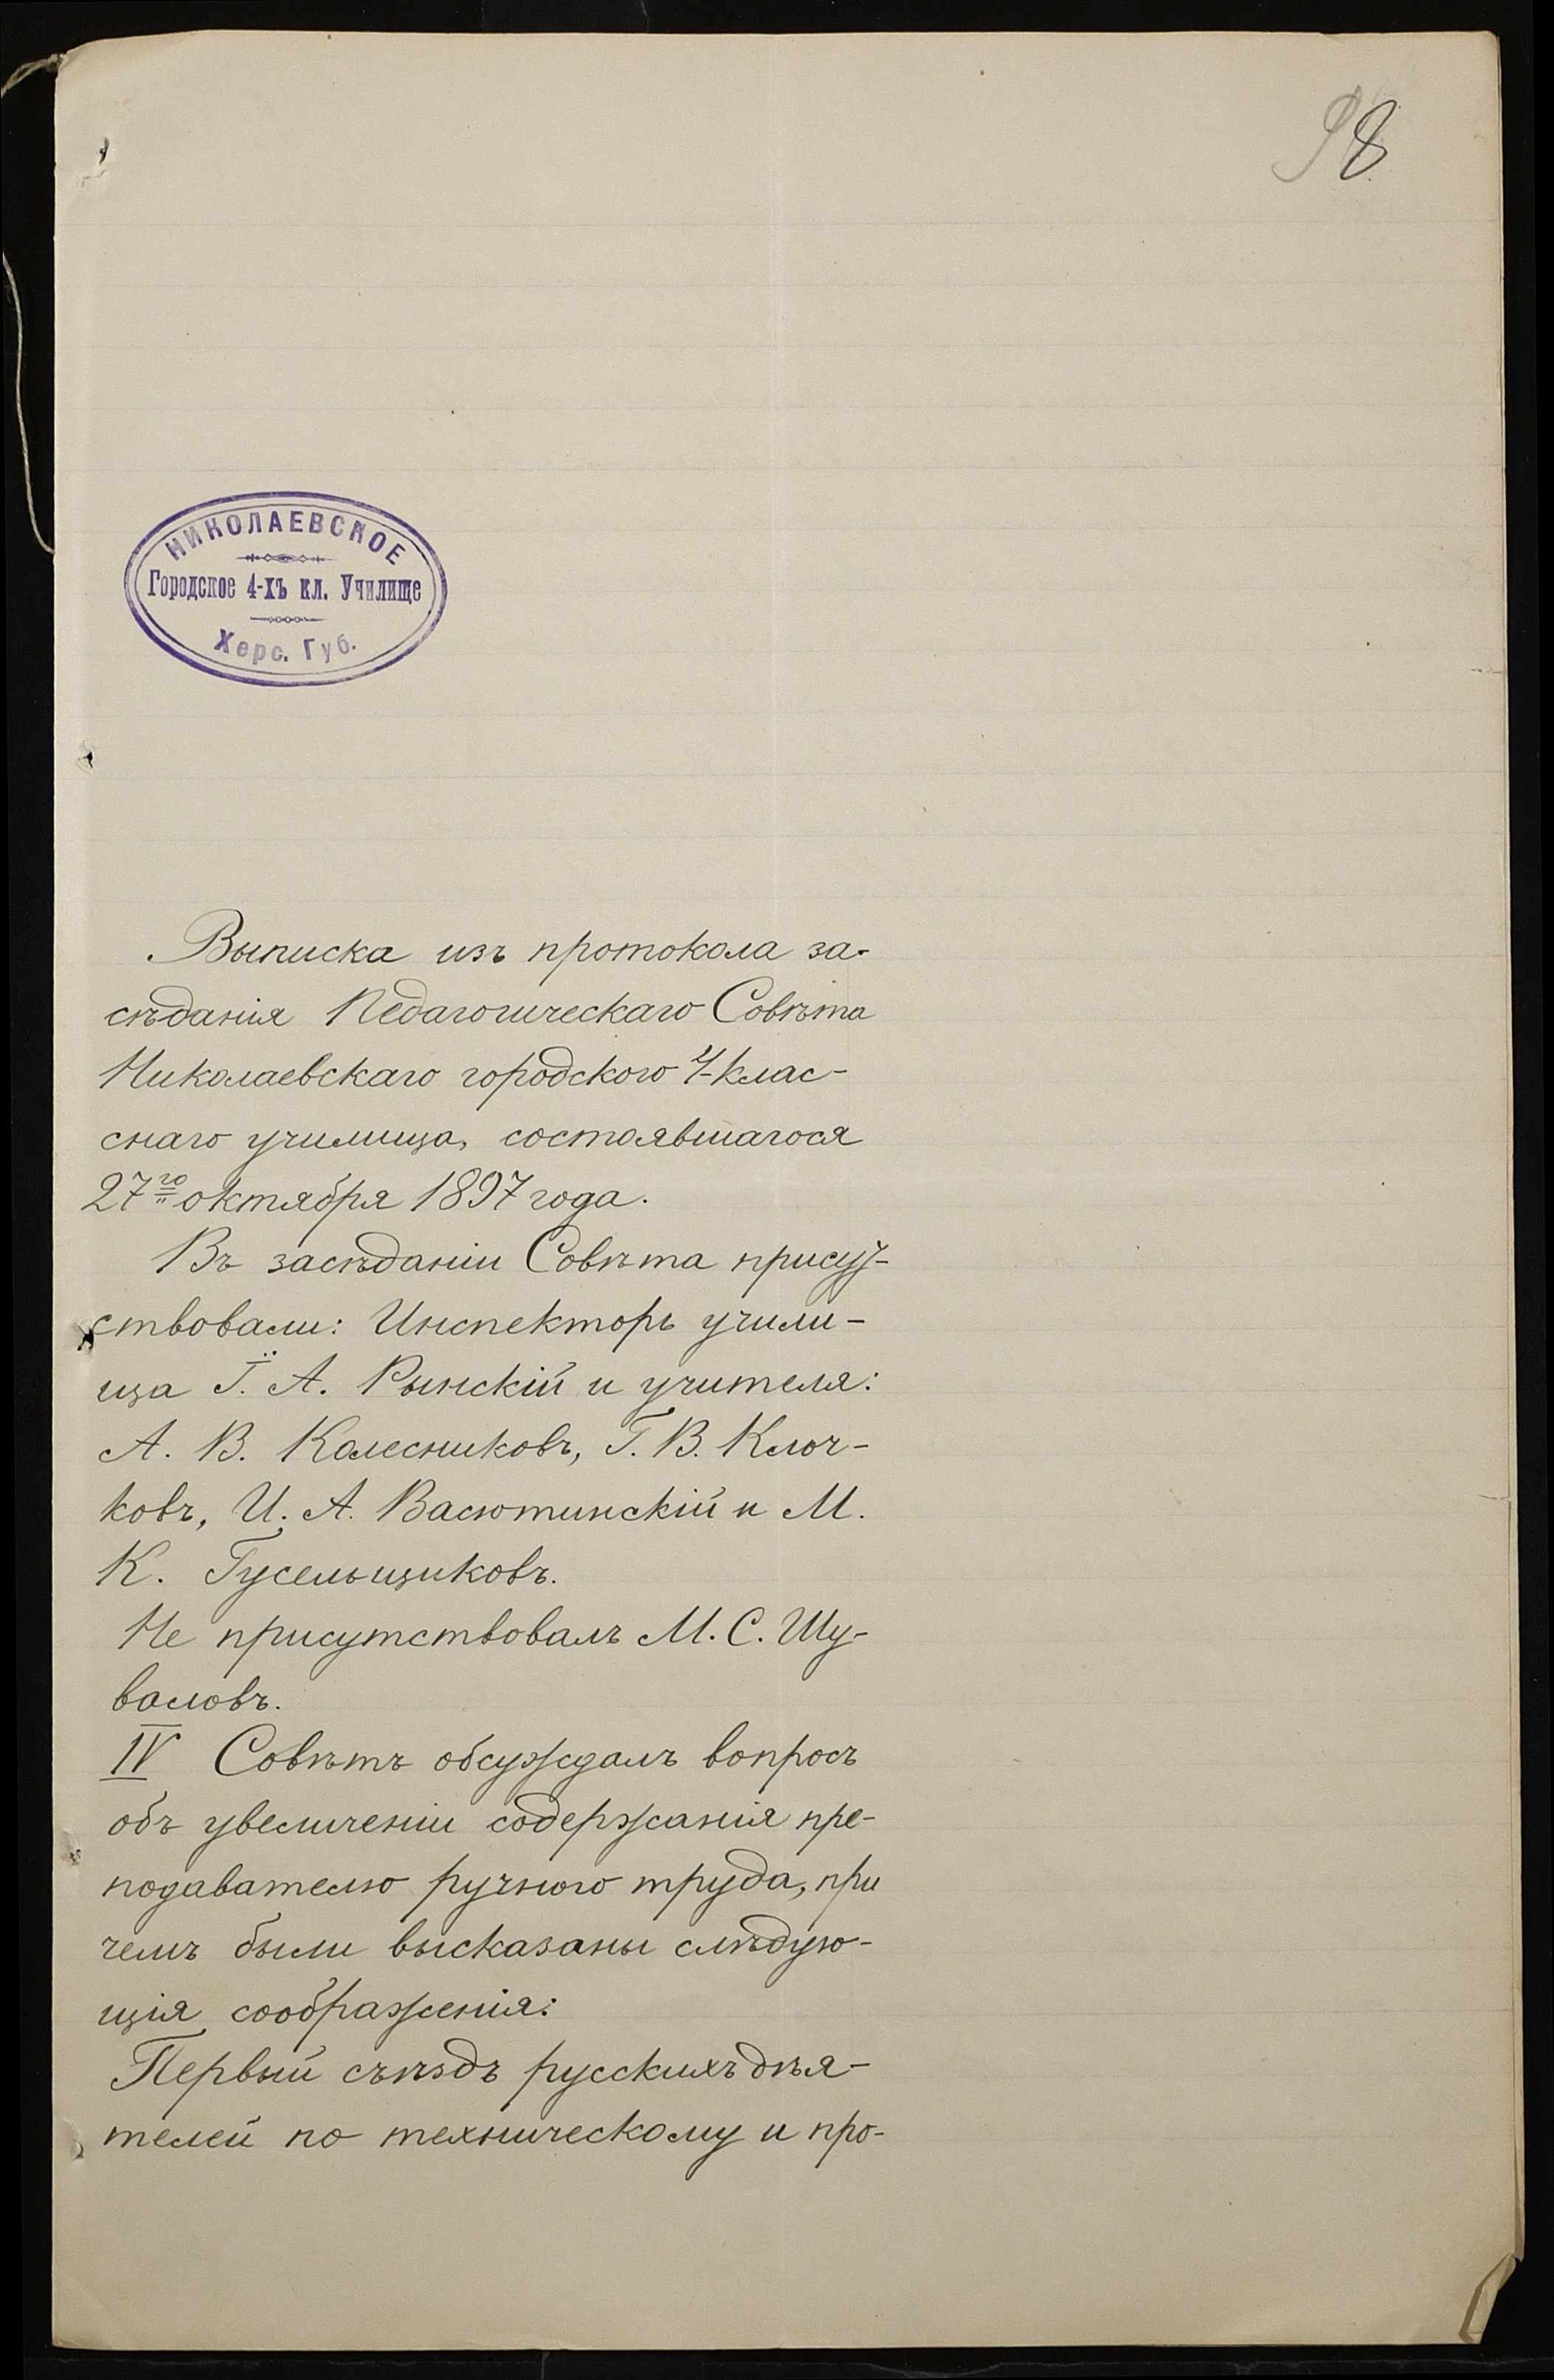 98
НИКОЛАЕВСКОЕ
Городское 4-хъ кл. Училище
Херс. Губ.
Выписка изъ протокола за-
сѣданія Педагогическаго Совѣта
Николаевскаго городского 4-клас-
снаго училища, состоявшагося
27го октября 1897 года.
Въ засѣданіи Совѣта присут-
ствовали: Инспекторъ учили-
ща Г. А. Рынскій и учителя:
А. В. Колесниковъ, Г. В. Клоч-
ковъ, И. А. Васютинскій и М.
К. Гусельщиковъ.
Не присутствовалъ М. С. Шу-
валовъ.
IV Совѣтъ обсуждалъ вопросъ
объ увеличеніи содержанія пре-
подавателю ручного труда, при
чемъ были высказаны слѣдую-
щія соображенія:
Первый съѣздъ русскихъ дѣя-
телей по техническому и про-